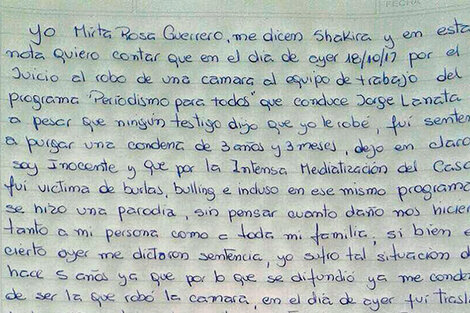 FECHA
yo Mirta Rosa Guerrero, me dicen Shakira y en esta
nota Quiero contar que en el dia de ayer 18/10/17 por el
Juicio al robo de una camara al equipo de trabajo del
programa "Periodismo para todos" que conduce Jorge Lanata
a pesar que ningun testigo dijo que yo le robé, fuí senten
a purgar una condena de 3 años y 3 meses, dejo en claro
soy Inocente y que por la Intensa Mediatización del Caso
fuí victima de burlas, bulling e incluso en ese mismo programa
se hizo una parodia, sin pensar cuanto daño nos hicier
tanto a mi persona como a toda mi familia, si bien e
cierto ayer me dictaron sentencia, yo sufro tal situación d
hace 5 años ya que por lo que se difundió ya me conde
de ser la que robó la camara, en el dia de ayer fuí trasla